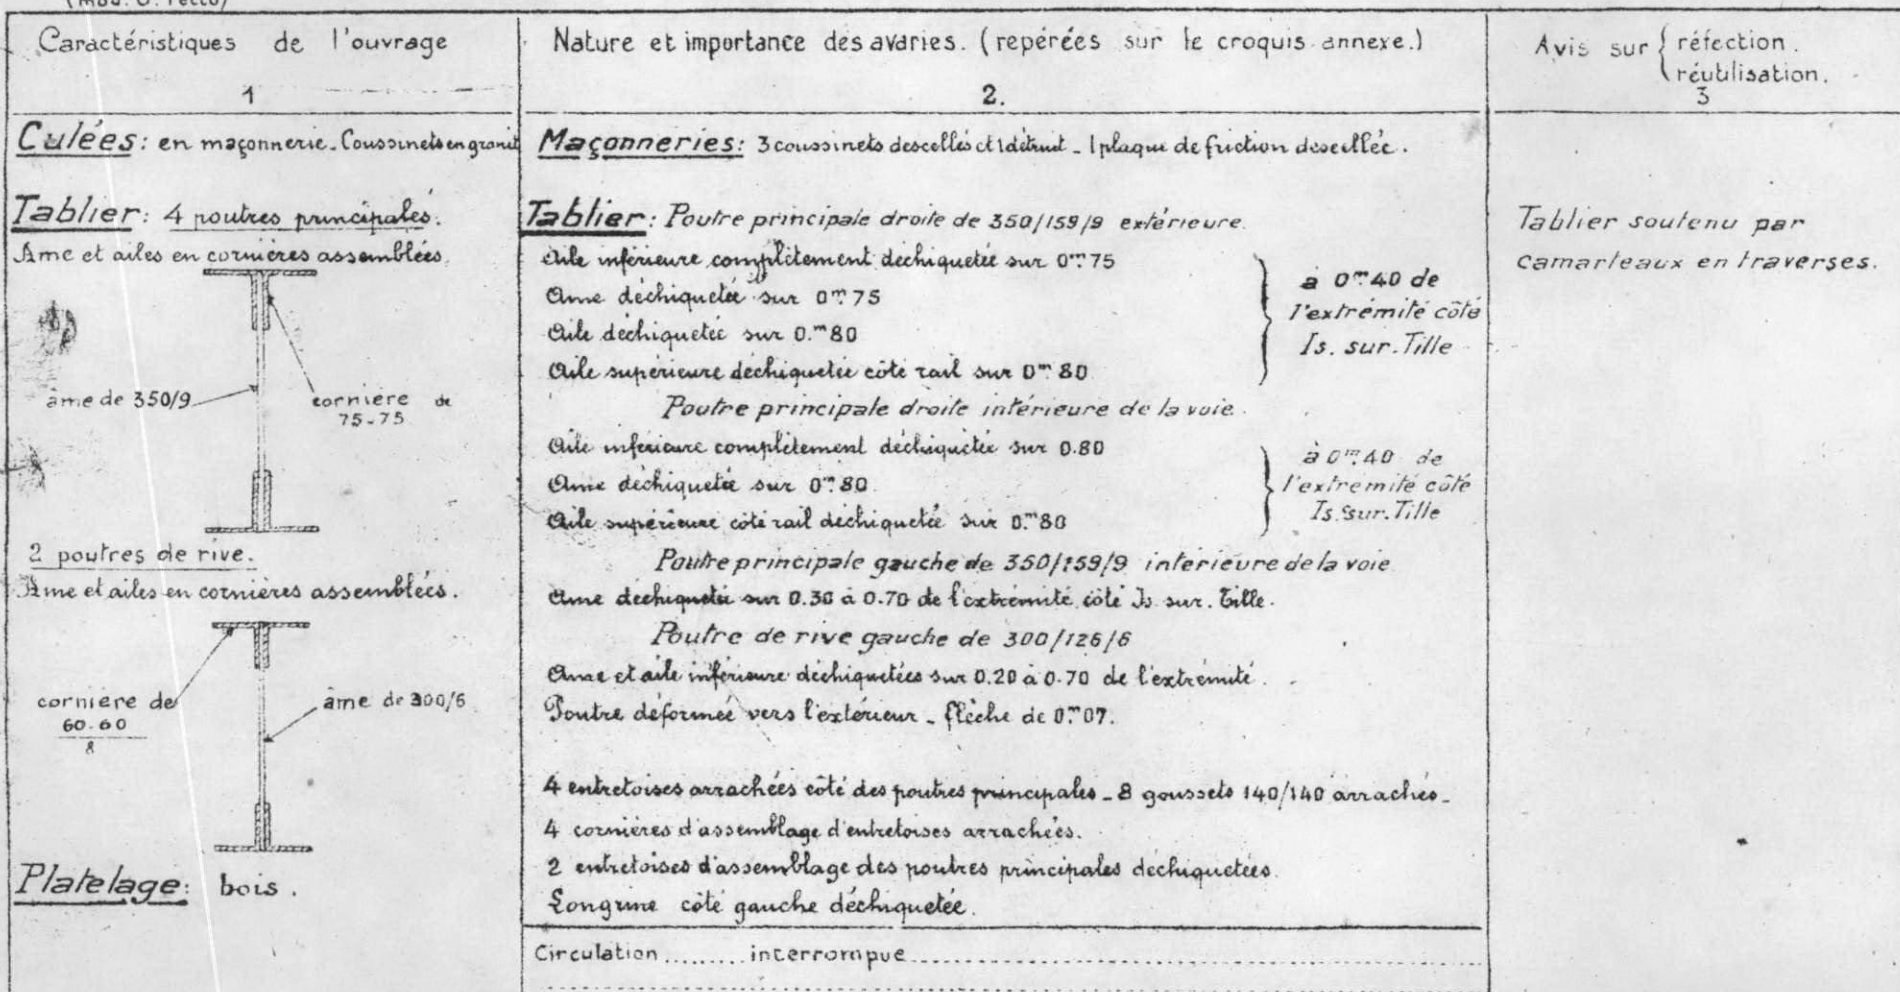 (Mod. O. recto)
Caractéristiques de l'ouvrage
1
Culées: en maçonnerie. Coussinets en granit
Tablier: 4 poutres principales.
Ame et ailes en cornières assemblées.
âme de 350/9
cornière de
75-75
2 poutres de rive.
Ame et ailes en cornières assemblées.
cornière de
60-60
8
âme de 300/6
Platelage: bois.
Nature et importance des avaries. (repérées sur le croquis annexe.)
2.
Maçonneries: 3 coussinets descellés et 1 détruit - 1 plaque de friction descellée.
Tablier: Poutre principale droite de 350/159/9 extérieure.
Aile inférieure complètement déchiquetée sur 0m75
Ame déchiquetée sur 0m75
Aile déchiquetée sur 0.m80
Aile supérieure déchiquetée côté rail sur 0m80
à 0m40 de
l'extrémité côté
Is. sur. Tille
Poutre principale droite intérieure de la voie.
Aile inférieure complètement déchiquetée sur 0.80
Ame déchiquetée sur 0m80
Aile supérieure côté rail déchiquetée sur 0.m80
à 0m40 de
l'extrémité côté
Is. sur. Tille
Poutre principale gauche de 350/159/9 intérieure de la voie
Ame déchiquetée sur 0.30 à 0.70 de l'extrémité côté Is. sur. Tille.
Poutre de rive gauche de 300/126/6
Ame et aile inférieure déchiquetées sur 0.20 à 0.70 de l'extrémité.
Poutre déformée vers l'extérieur - flèche de 0m07.
4 entretoises arrachées côté des poutres principales - 8 goussets 140/140 arrachés -
4 cornières d'assemblage d'entretoises arrachées.
2 entretoises d'assemblage des poutres principales déchiquetées.
Longrine côté gauche déchiquetée.
Circulation ........ interrompue ........
Avis sur { réfection.
réutilisation.
3
Tablier soutenu par
camarteaux en traverses.